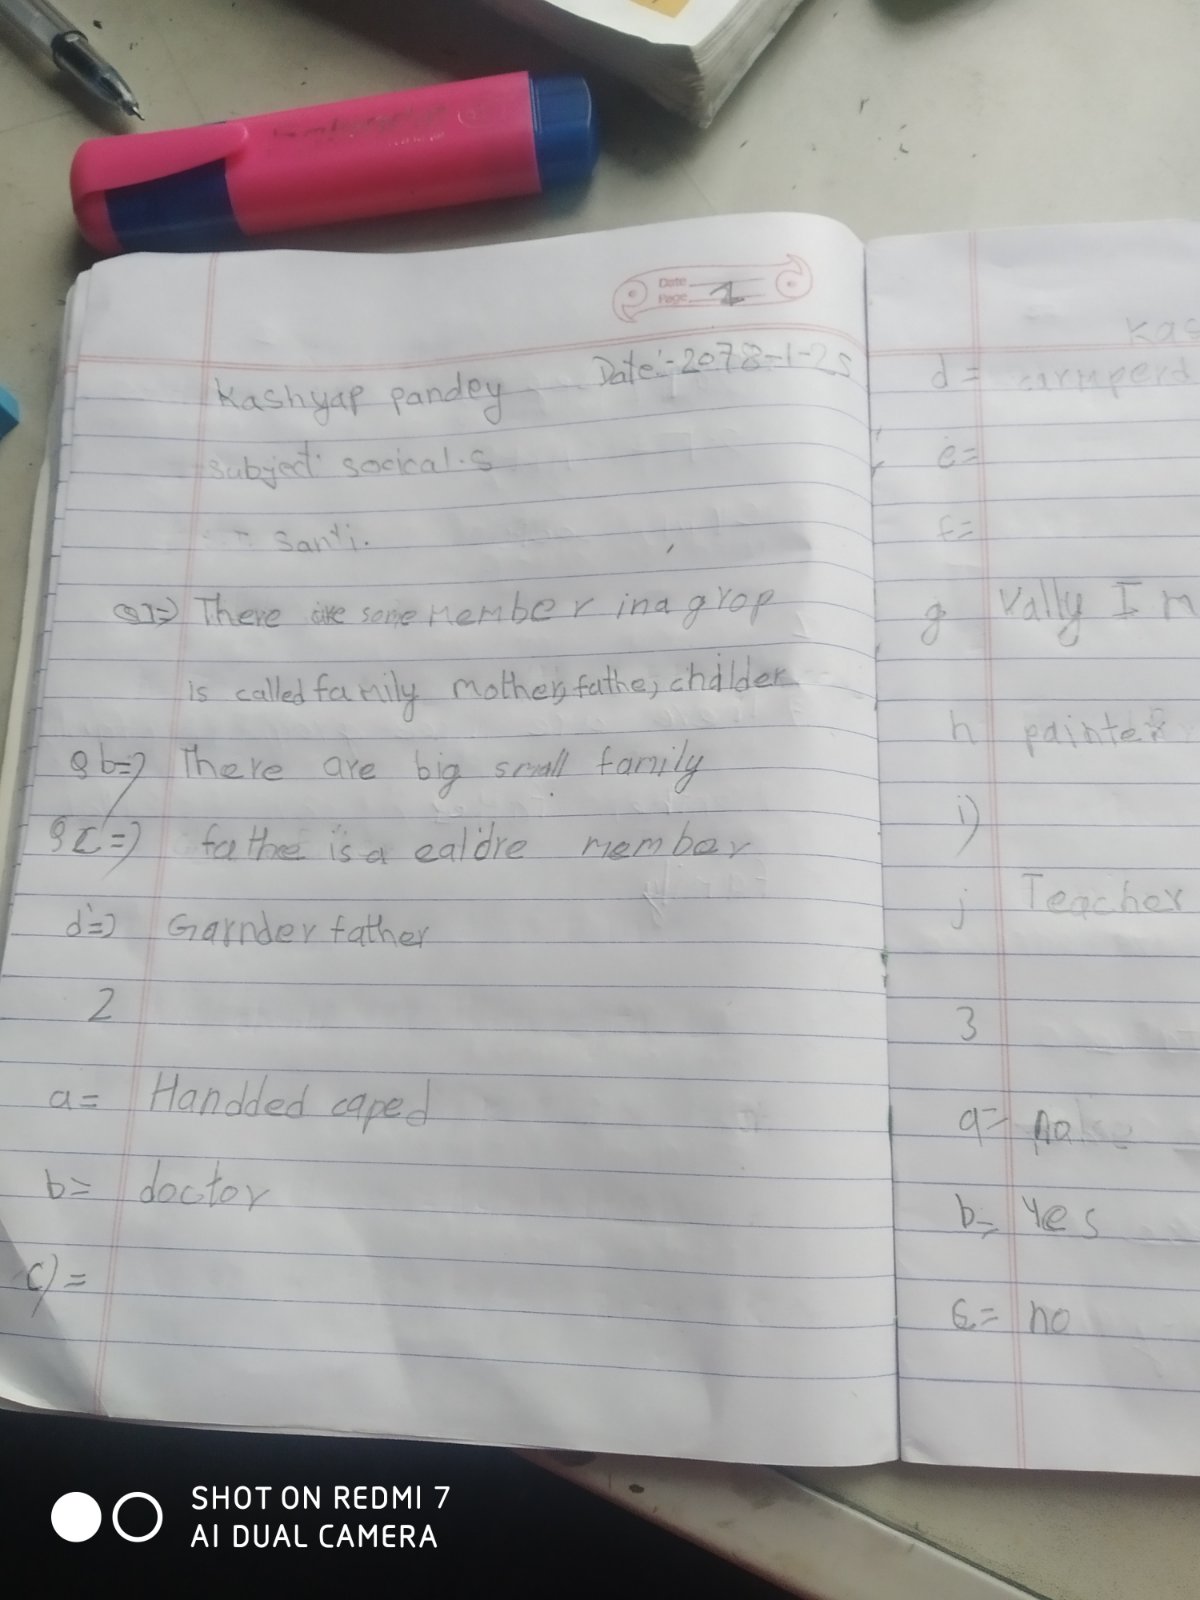 Date
Page 1
Date:- 2078-1-25
Kashyap pandey
subject socical.s
santi.
There are some member in a grop
is called family mother, fathe, childer
Qb=> There are big small family
Qc=> fathe is a ealdre member
d=> Garnder father
2
a= Handded caped
b= doctor
c)=
Kas
d= carnperd
e=
f=
g Vally I n
h painter
i)
j Teacher
3
a=
b= Yes
c= no
SHOT ON REDMI 7
AI DUAL CAMERA